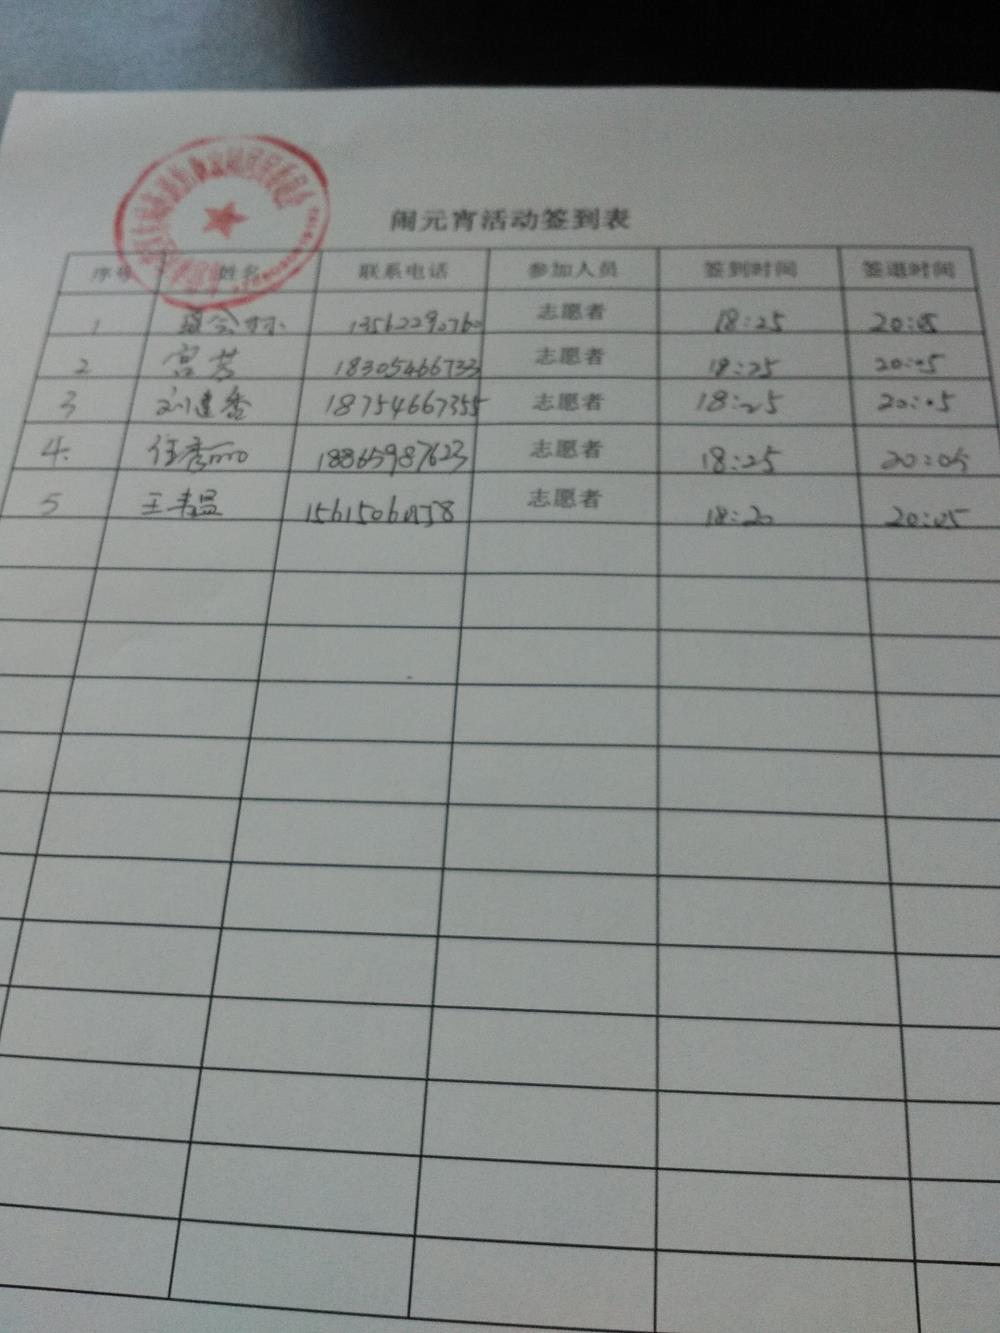 闹元宵活动签到表
序号 姓名 联系电话 参加人员 签到时间 签退时间
1 13562290760 志愿者 18:25 20:05
2 宫芳 18305466733 志愿者 18:25 20:05
3 刘建香 18754667355 志愿者 18:25 20:05
4. 任秀 18865987623 志愿者 18:25 20:05
5 王 志愿者 18:20 20:05